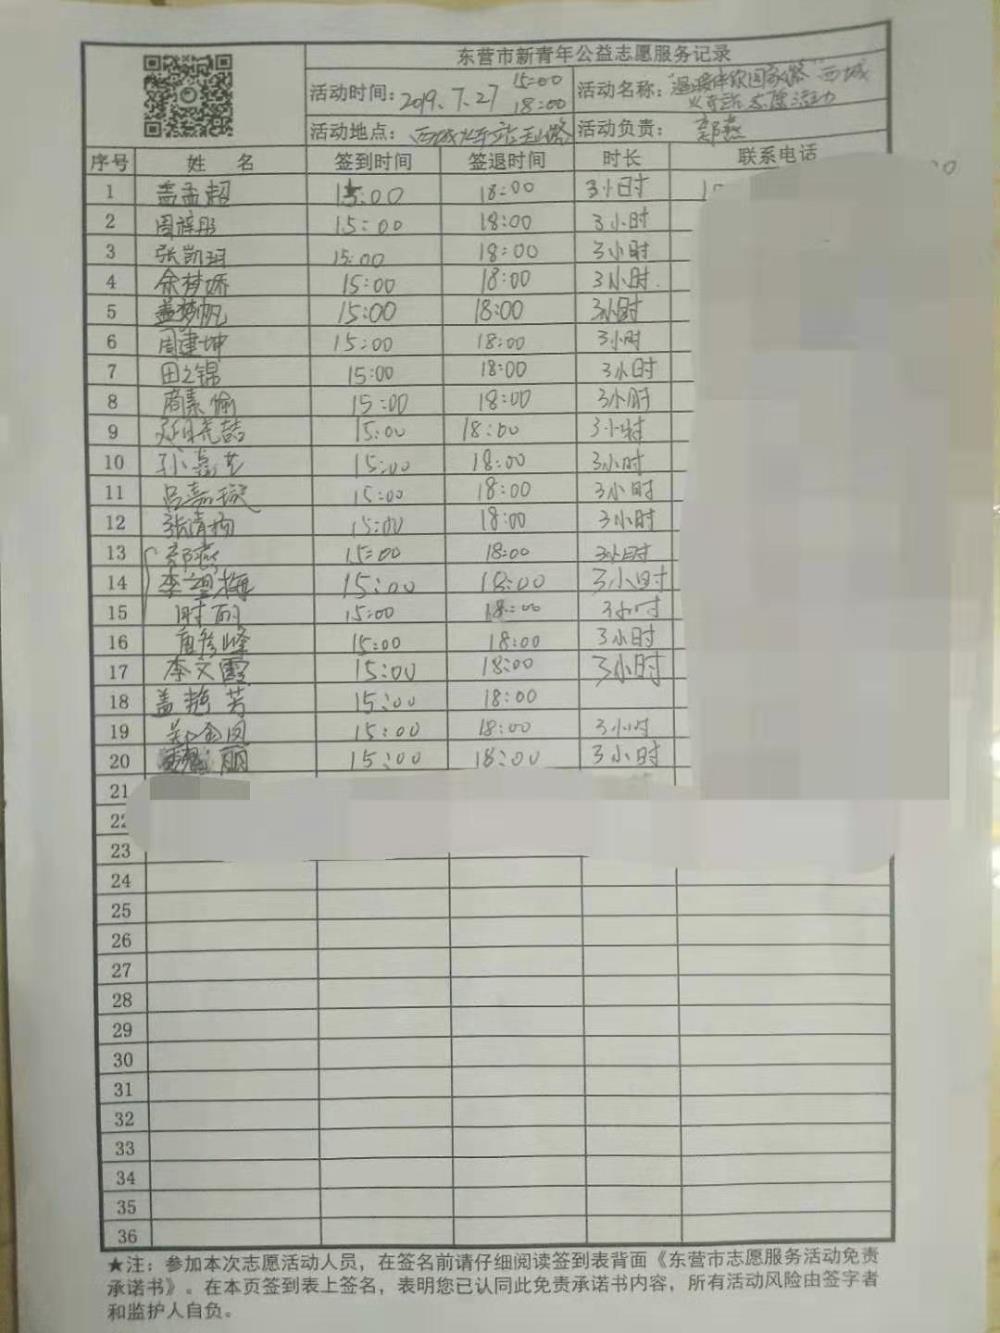 东营市新青年公益志愿服务记录
活动时间: 2019.7.27 15:00 18:00 活动名称: "温暖伴你回家路"西城火车站志愿活动
活动地点: 西城火车站 活动负责: 郭燕
序号 姓 名 签到时间 签退时间 时长 联系电话
1 盖孟超 15:00 18:00 3小时
2 周梓彤 15:00 18:00 3小时
3 张凯玥 15:00 18:00 3小时
4 余梦娇 15:00 18:00 3小时.
5 盖梦帆 15:00 18:00 3小时
6 周建坤 15:00 18:00 3小时
7 田之锦 15:00 18:00 3小时
8 商素愉 15:00 18:00 3小时
9 15:00 18:00 3小时
10 孙嘉艺 15:00 18:00 3小时
11 吕嘉璇 15:00 18:00 3小时
12 张清扬 15:00 18:00 3小时
13 郭燕 15:00 18:00 3小时
14 李翠梅 15:00 18:00 3小时
15 时丽 15:00 18:00 3小时
16 唐彦峰 15:00 18:00 3小时
17 李文霞 15:00 18:00 3小时
18 盖艳芳 15:00 18:00
19 郑金凤 15:00 18:00 3小时
20 丽 15:00 18:00 3小时
21
22
23
24
25
26
27
28
29
30
31
32
33
34
35
36
★注：参加本次志愿活动人员，在签名前请仔细阅读签到表背面《东营市志愿服务活动免责
承诺书》。在本页签到表上签名，表明您已认同此免责承诺书内容，所有活动风险由签字者
和监护人自负。